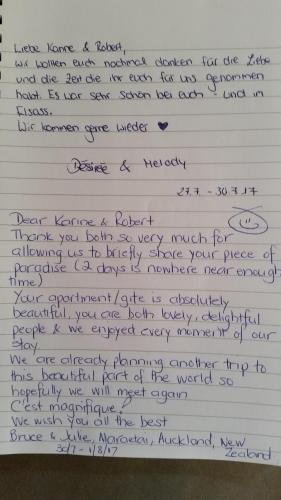 Liebe Karine & Robert,
wir wollen euch nochmal danken für die Liebe
und die Zeit die ihr euch für uns genommen
habt. Es war sehr schön bei euch - und in
Elsass.
Wir kommen gerne wieder ♥
Désirée & Melody
27.7. - 30.7.17
Dear Karine & Robert
Thank you both so very much for
allowing us to briefly share your piece of
paradise (2 days is nowhere near enough
time)
Your apartment/gite is absolutely
beautiful, you are both lovely, delightful
people & we enjoyed every moment of our
stay.
We are already planning another trip to
this beautiful part of the world so
hopefully we will meet again
C'est magnifique!
We wish you all the best
Bruce & Julie, Maraetai, Auckland, New
Zealand
30/7 - 1/8/17